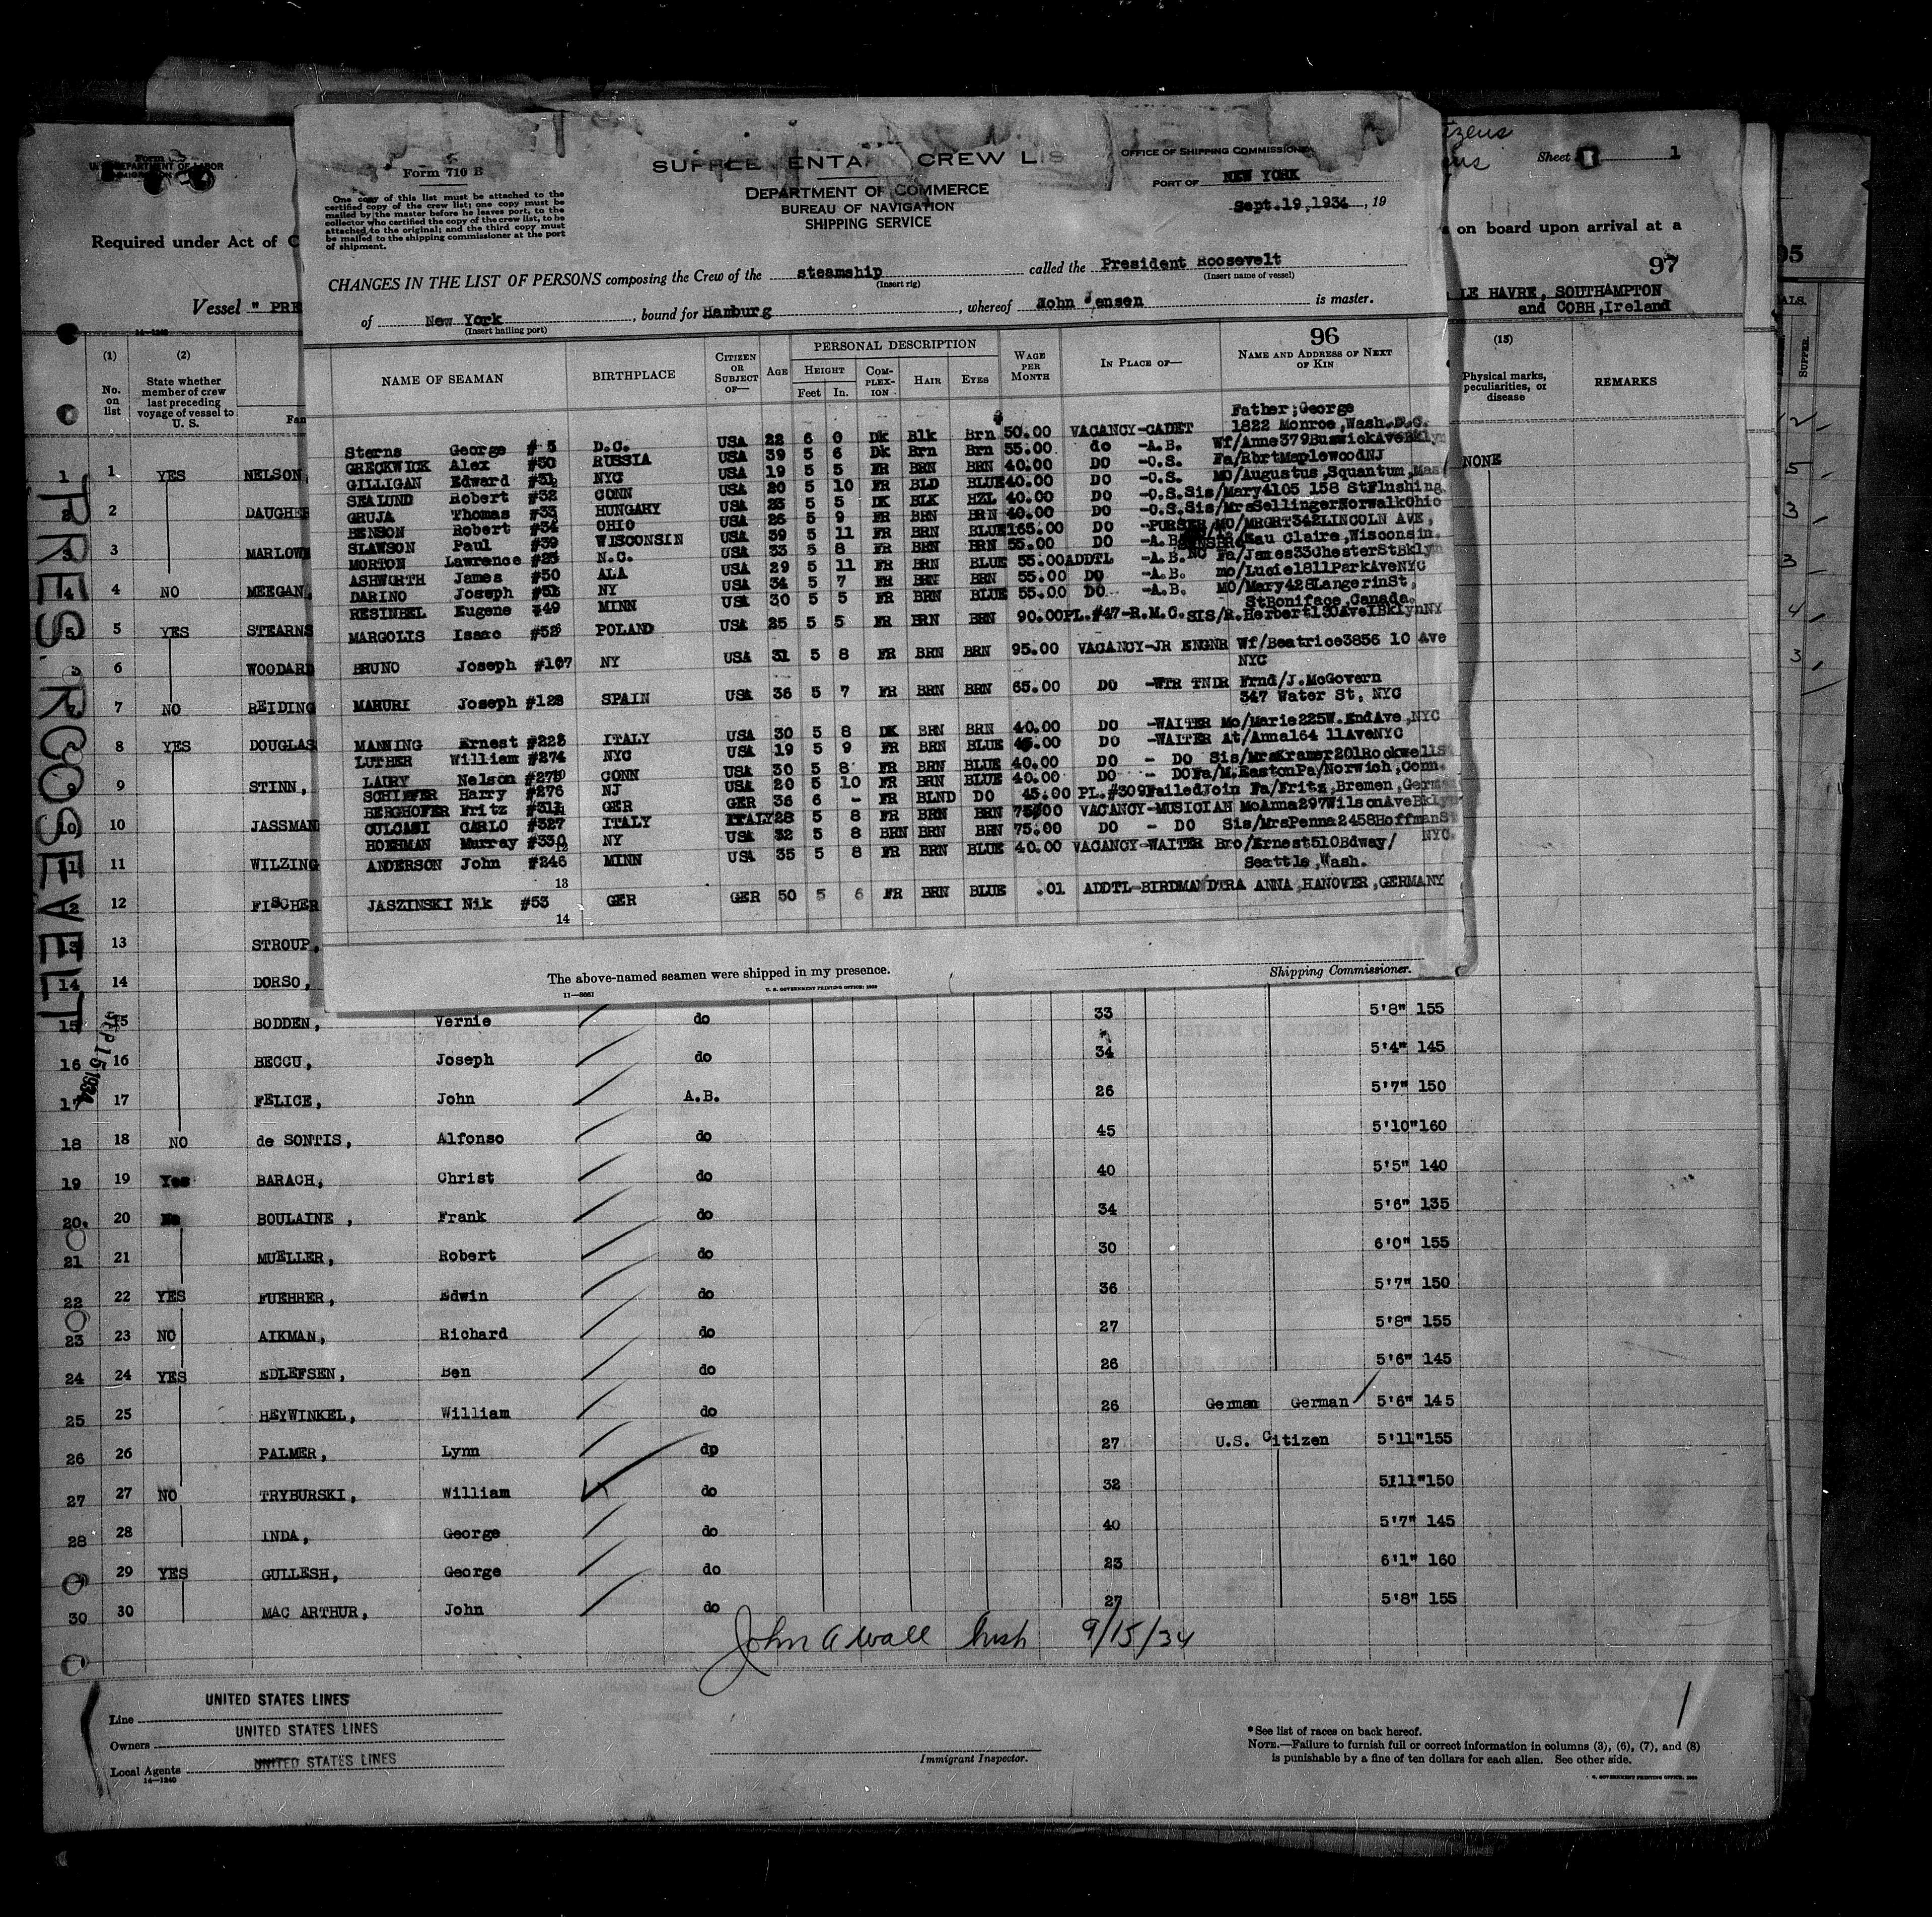 Form 710 B
SUPPLEMENTAL CREW LIS
OFFICE OF SHIPPING COMMISSIONER
DEPARTMENT OF COMMERCE
BUREAU OF NAVIGATION
SHIPPING SERVICE
PORT OF NEW YORK
Sept.19,1934, 19
One copy of this list must be attached to the
certified copy of the crew list; one copy must be
mailed by the master before he leaves port, to the
collector who certified the copy of the crew list, to be
attached to the original; and the third copy must
be mailed to the shipping commissioner at the port
of shipment.
CHANGES IN THE LIST OF PERSONS composing the Crew of the steamship called the President Roosevelt
(Insert rig) (Insert name of vessel)
of New York, bound for Hamburg, whereof John Jensen is master.
(Insert hailing port)
96
NAME OF SEAMAN BIRTHPLACE CITIZEN OR SUBJECT OF— AGE PERSONAL DESCRIPTION HEIGHT Feet In. COMPLEXION HAIR EYES WAGE PER MONTH IN PLACE OF— NAME AND ADDRESS OF NEXT OF KIN
Father;George
Sterns George # 5 D.C. USA 22 6 0 Dk Blk Brn 50.00 VACANCY-CADET 1822 Monroe,Wash.D.C.
GRECKWICK Alex #30 RUSSIA USA 39 5 6 Dk Brn Brn 55.00 do -A.B. Wf/Anne379BuswickAveBklyn
GILLIGAN Edward #31 NYC USA 19 5 5 FR BRN BRN 40.00 DO -O.S. Fa/RbrtMaplewoodNJ
SEALUND Robert #32 CONN USA 20 5 10 FR BLD BLUE 40.00 DO -O.S. MO/Augustus,Squantum,Mas
GRUJA Thomas #33 HUNGARY USA 5 5 DK BLK HZL 40.00 DO -O.S. Sis/Mary4105 158 StFlushing
BENSON Robert #34 OHIO USA 5 9 FR BRN BRN 40.00 DO -O.S. Sis/MrsSellingerNorwalkOhio
SLAWSON Paul #39 WISCONSIN USA 39 5 11 FR BRN BLUE 165.00 DO -PURSER MO/MRGRT342LINCOLN AVE,
Eau Claire,Wisconsin.
MORTON Lawrence N.C. USA 33 5 8 FR BRN BRN 55.00 DO -A.B.
ASHWORTH James #50 ALA USA 29 5 11 FR BRN BLUE 55.00 ADDTL -A.B. Fa/James33ChesterStBklyn
DARINO Joseph NY USA 34 5 7 FR BRN BRN 55.00 DO -A.B. mo/Lucie1811ParkAveNYC
RESINBEL Eugene MINN USA 30 5 5 FR BRN BLUE 55.00 DO -A.B. MO/Mary428LangerinSt,
StBoniface,Canada.
MARGOLIS Isaac POLAND USA 25 5 5 FR BRN BRN 90.00 PL.#47-R.M.C. SIS/R.Herbert130AveIBklynNY
BRUNO Joseph #107 NY USA 31 5 8 FR BRN BRN 95.00 VACANCY-JR ENGNR Wf/Beatrice3856 10 Ave
NYC
MARURI Joseph #128 SPAIN USA 36 5 7 FR BRN BRN 65.00 DO -WTR TNDR Frnd/J.McGovern
347 Water St, NYC
MANNING Ernest ITALY USA 30 5 8 DK BRN BRN 40.00 DO -WAITER Mo/Marie225W.EndAve,NYC
LUTHER William #274 NYC USA 19 5 9 FR BRN BLUE DO -WAITER At/Anna164 11AveNYC
LAIRY Nelson CONN USA 30 5 8 FR BRN BLUE 40.00 DO - DO Sis/MrsKramer201RockwellSt
SCHIFFER Harry #276 NJ USA 20 5 10 FR BRN BLUE 40.00 DO - DO Fa/M.EastonPa/Norwich,Conn.
BERGHOFER Fritz GER GER 36 6 - FR BLND DO 45.00 PL.#309FailedJoin Fa/Fritz,Bremen,German
CARLO #327 ITALY ITALY 28 5 8 FR BRN BRN 75.00 VACANCY-MUSICIAN MoAnna297WilsonAveBklyn
HOFFMAN Murray NY USA 32 5 8 BRN BRN BRN 75.00 DO - DO Sis/MrsPenna2458HoffmanSt
NYC.
ANDERSON John #246 MINN USA 35 5 8 FR BRN BLUE 40.00 VACANCY-WAITER Bro/Ernest510Bdway/
Seattle,Wash.
13
JASZINSKI Nik #53 GER GER 50 5 6 FR BRN BLUE .01 ADDTL-BIRDMAN DTRA ANNA,HANOVER,GERMANY
14
The above-named seamen were shipped in my presence.
Shipping Commissioner.
11—8661 U. S. GOVERNMENT PRINTING OFFICE: 1929
Sheet 1
Required under Act of C
s on board upon arrival at a
97
95
Vessel " PRE
LE HAVRE, SOUTHAMPTON
and COBH,Ireland
14—1240
(1) (2) (15)
No. on list
State whether member of crew last preceding voyage of vessel to U. S.
Fam
Physical marks, peculiarities, or disease
REMARKS
SUPPER.
PRES. ROOSEVELT
SEP 15 1934
1 1 YES NELSON, NONE
2 2 DAUGHE
3 3 MARLOWE
4 4 NO MEEGAN,
5 5 YES STEARNS
6 6 WOODARD
7 7 NO REIDING
8 8 YES DOUGLAS
9 9 STINN,
10 10 JASSMAN
11 11 WILZING
12 12 FISCHER
13 13 STROUP,
14 14 DORSO,
15 15 BODDEN, Vernie do 33 5'8" 155
16 16 BECCU, Joseph do 34 5'4" 145
17 17 FELICE, John A.B. 26 5'7" 150
18 18 NO de SONTIS, Alfonso do 45 5'10" 160
19 19 Yes BARACH, Christ do 40 5'5" 140
20 20 BOULAINE , Frank do 34 5'6" 135
21 21 MUELLER, Robert do 30 6'0" 155
22 22 YES FUEHRER, Edwin do 36 5'7" 150
23 23 NO AIKMAN, Richard do 27 5'8" 155
24 24 YES EDLEFSEN, Ben do 26 5'6" 145
25 25 HEYWINKEL, William do 26 German German 5'6" 145
26 26 PALMER, Lynn dp 27 U.S. Citizen 5'11" 155
27 27 NO TRYBURSKI, William do 32 5'11" 150
28 28 INDA, George do 40 5'7" 145
29 29 YES GULLESH, George do 23 6'1" 160
30 30 MAC ARTHUR, John do 27 5'8" 155
John A Wall Insp 9/15/34
Line UNITED STATES LINES
Owners UNITED STATES LINES
Local Agents UNITED STATES LINES
14—1240
Immigrant Inspector.
*See list of races on back hereof.
NOTE.—Failure to furnish full or correct information in columns (3), (6), (7), and (8)
is punishable by a fine of ten dollars for each alien. See other side.